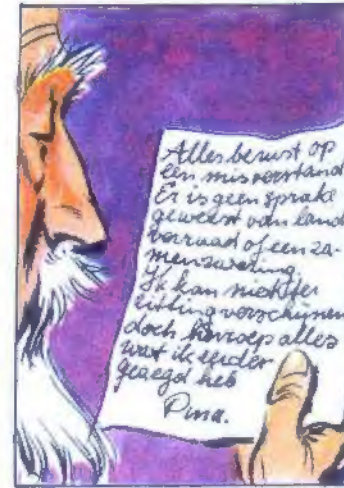 Alles berust op
een misverstand
Er is geen sprake
geweest van land
verraad of een za-
menzwering
Ik kan niet ter
zitting verschijnen
doch herroep alles
wat ik eerder
gezegd heb
Pina.